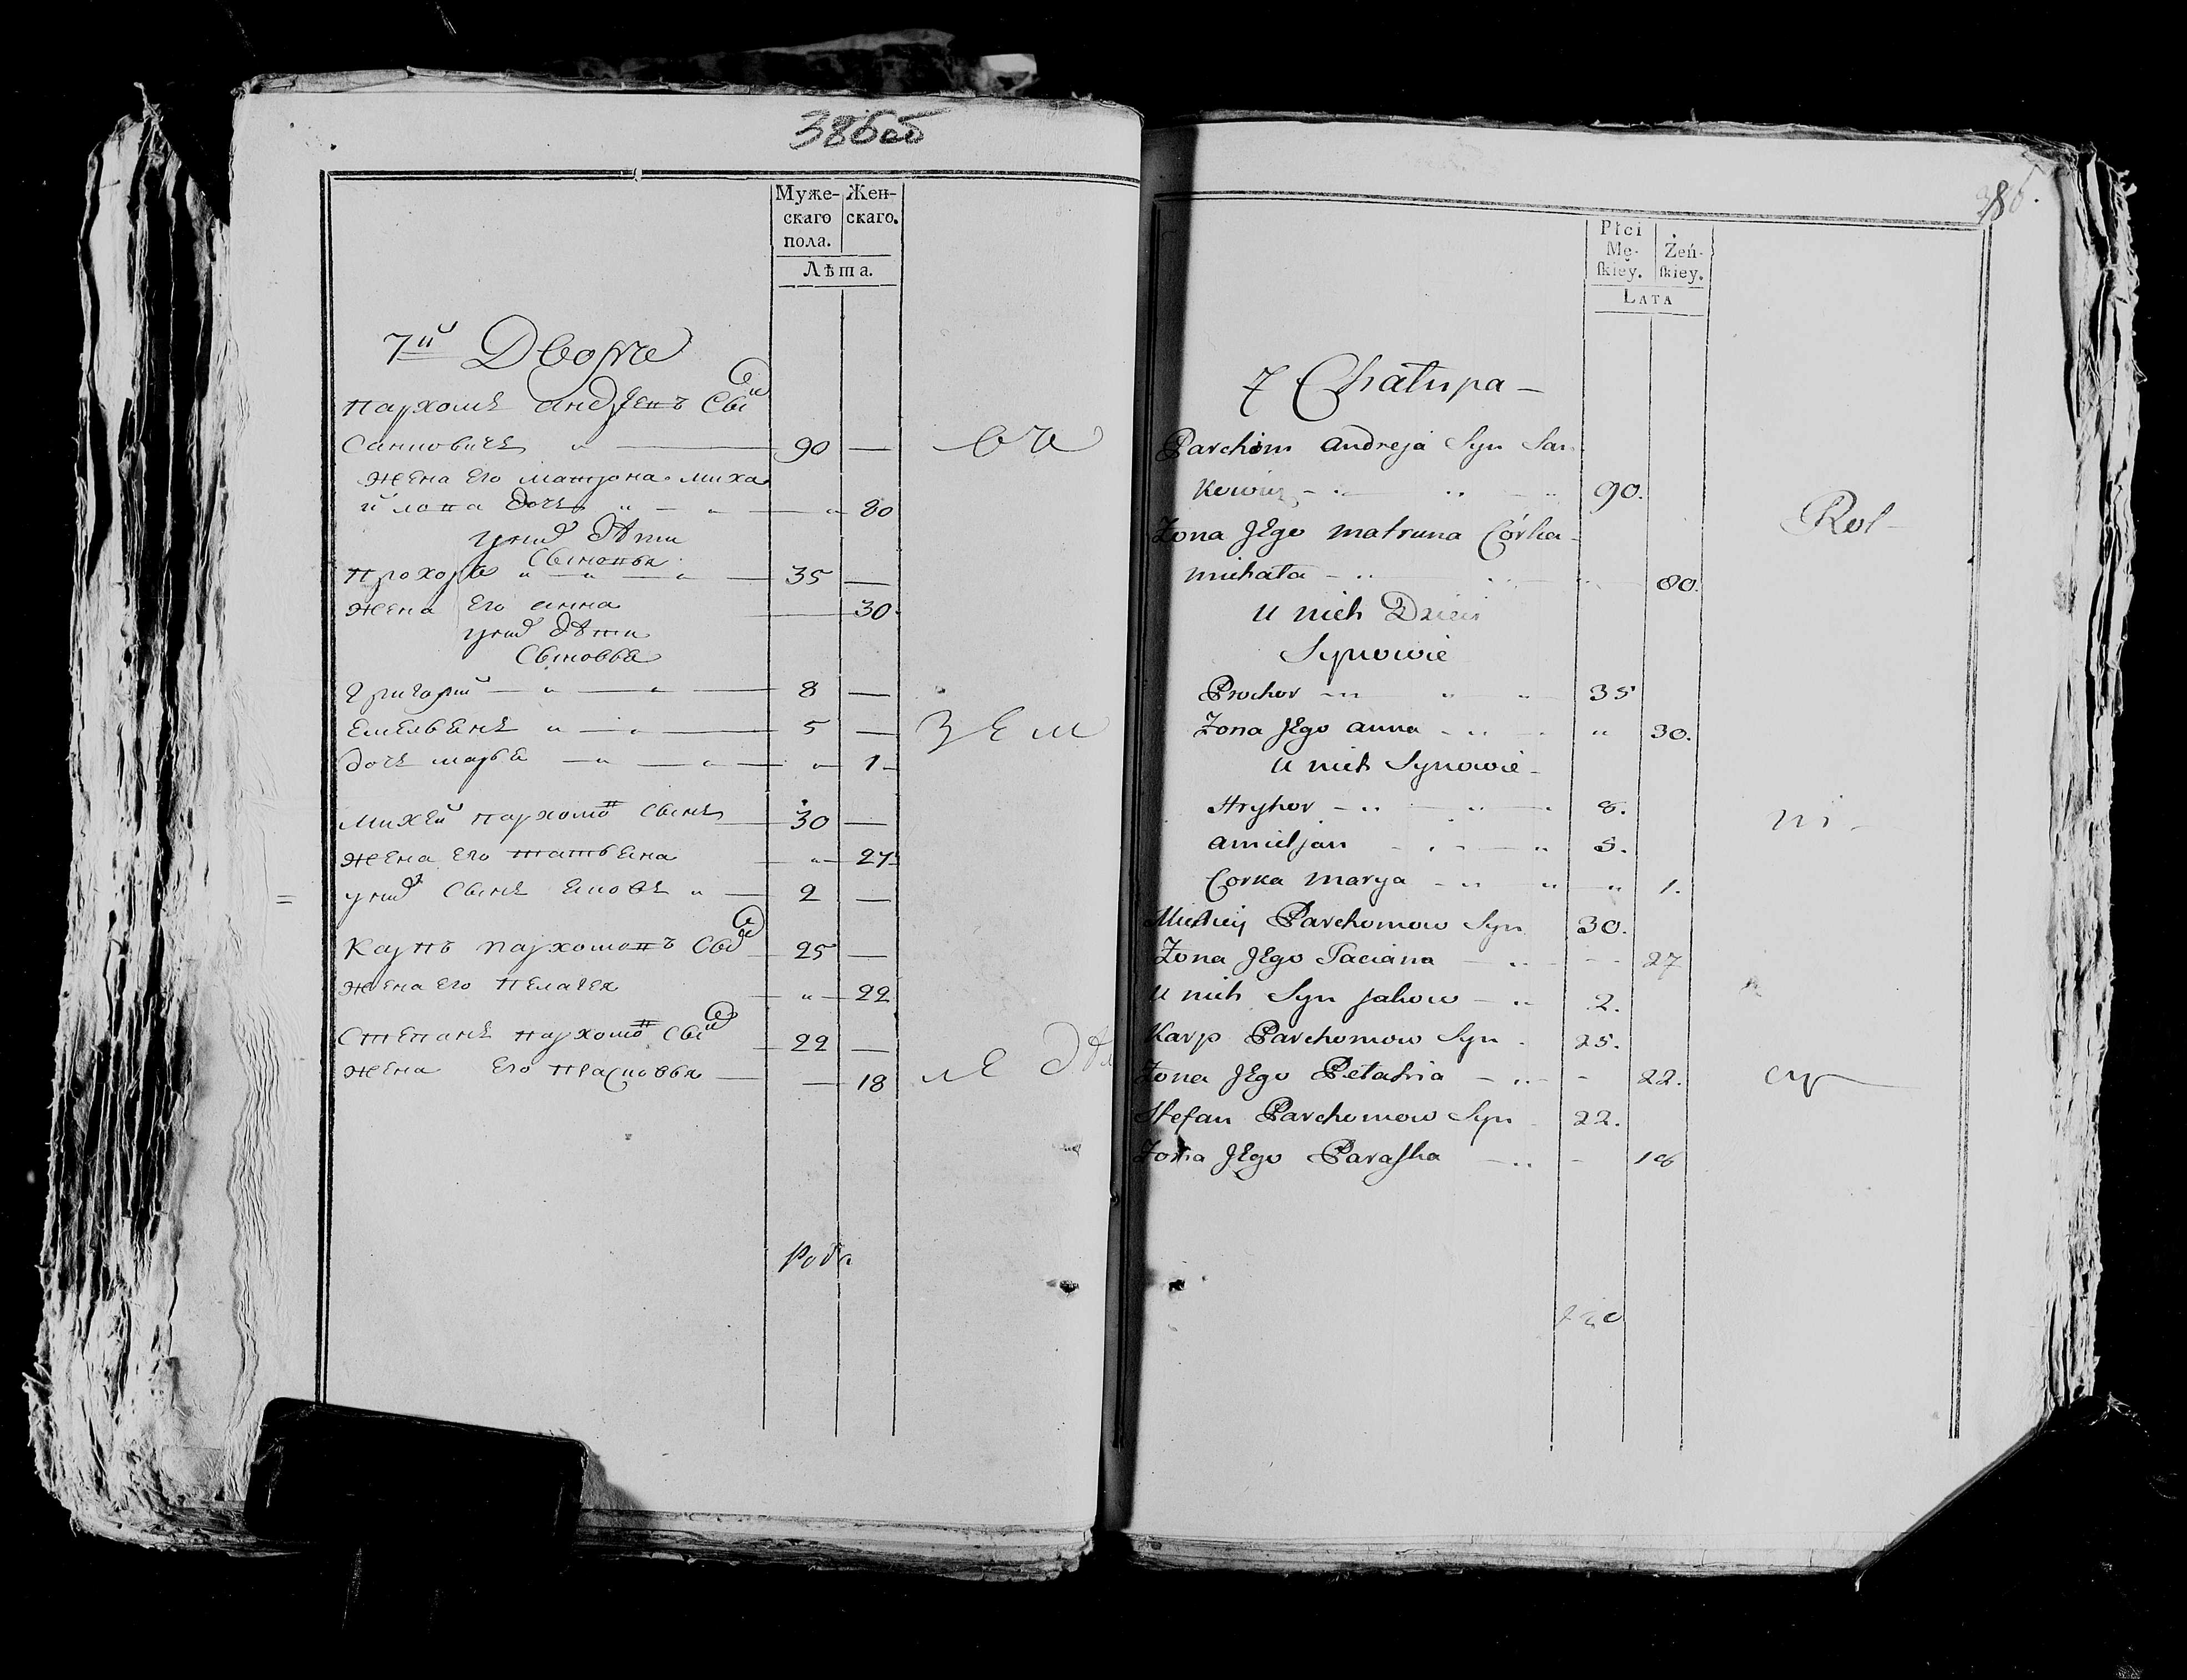 386об
Муже- Жен-
скаго скаго.
пола.
Лѣта.
7й Дворъ
Пархомъ Андреевъ Сынъ
Санковичъ 90 —
Жена Его Матрона Миха
йлова дочь 80
у них дѣти
Сыновья
Прохоръ 35 —
Жена Его Анна 30
у них дѣти
Сыновья
Григорий 8 —
Емельянъ 5 —
дочь Марья 1
Михей Пархомов Сынъ 30 —
Жена Его Татьяна 27
у них Сынъ Яковъ 2 —
Карпъ Пархомовъ Сын 25 —
Жена Его Пелагея 22
Степанъ Пархомов Сын 22 —
Жена Его Прасковья 18
зем
ле дѣл
386.
Płci
Mę- Żeń-
ſkiey. ſkiey.
LATA
7 Chałupa —
Parchim Andreja Syn San
kowicz 90.
Żona Jego Matruna Córka
Michała 80.
U nich Dzieci
Synowie
Prochor 35
Żona Jego Anna 30.
U nich Synowie
Hryhor 8.
Amieljan 5.
Corka Marya 1.
Michiey Parchomow Syn 30.
Żona Jego Taciana 27
U nich Syn Jakow 2.
Karp Parchomow Syn 25.
Żona Jego Pełahia 22.
Stefan Parchomow Syn 22.
Żona Jego Paraſka 18
Rol
ni